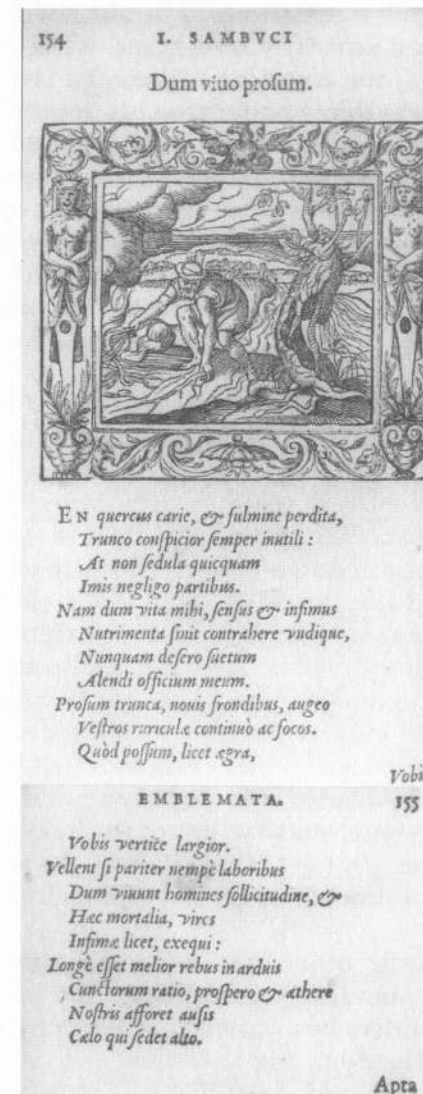 154 I. SAMBVCI
Dum viuo prosum.
EN quercus carie, & fulmine perdita,
Trunco conspicior semper inutili:
At non sedula quicquam
Imis negligo partibus.
Nam dum vita mihi, sensus & infimus
Nutrimenta sinit contrahere vndique,
Nunquam desero suetum
Alendi officium meum.
Prosum trunca, nouis frondibus, augeo
Vestros ruriculæ continuò ac focos.
Quòd possum, licet ægra,
Vobis
EMBLEMATA. 155
Vobis vertice largior.
Vellent si pariter nempè laboribus
Dum viuunt homines sollicitudine, &
Hæc mortalia, vires
Infimæ licet, exequi:
Longè esset melior rebus in arduis
Cunctorum ratio, prospero & æthere
Nostris afforet ausis
Cælo qui sedet alto.
Apta